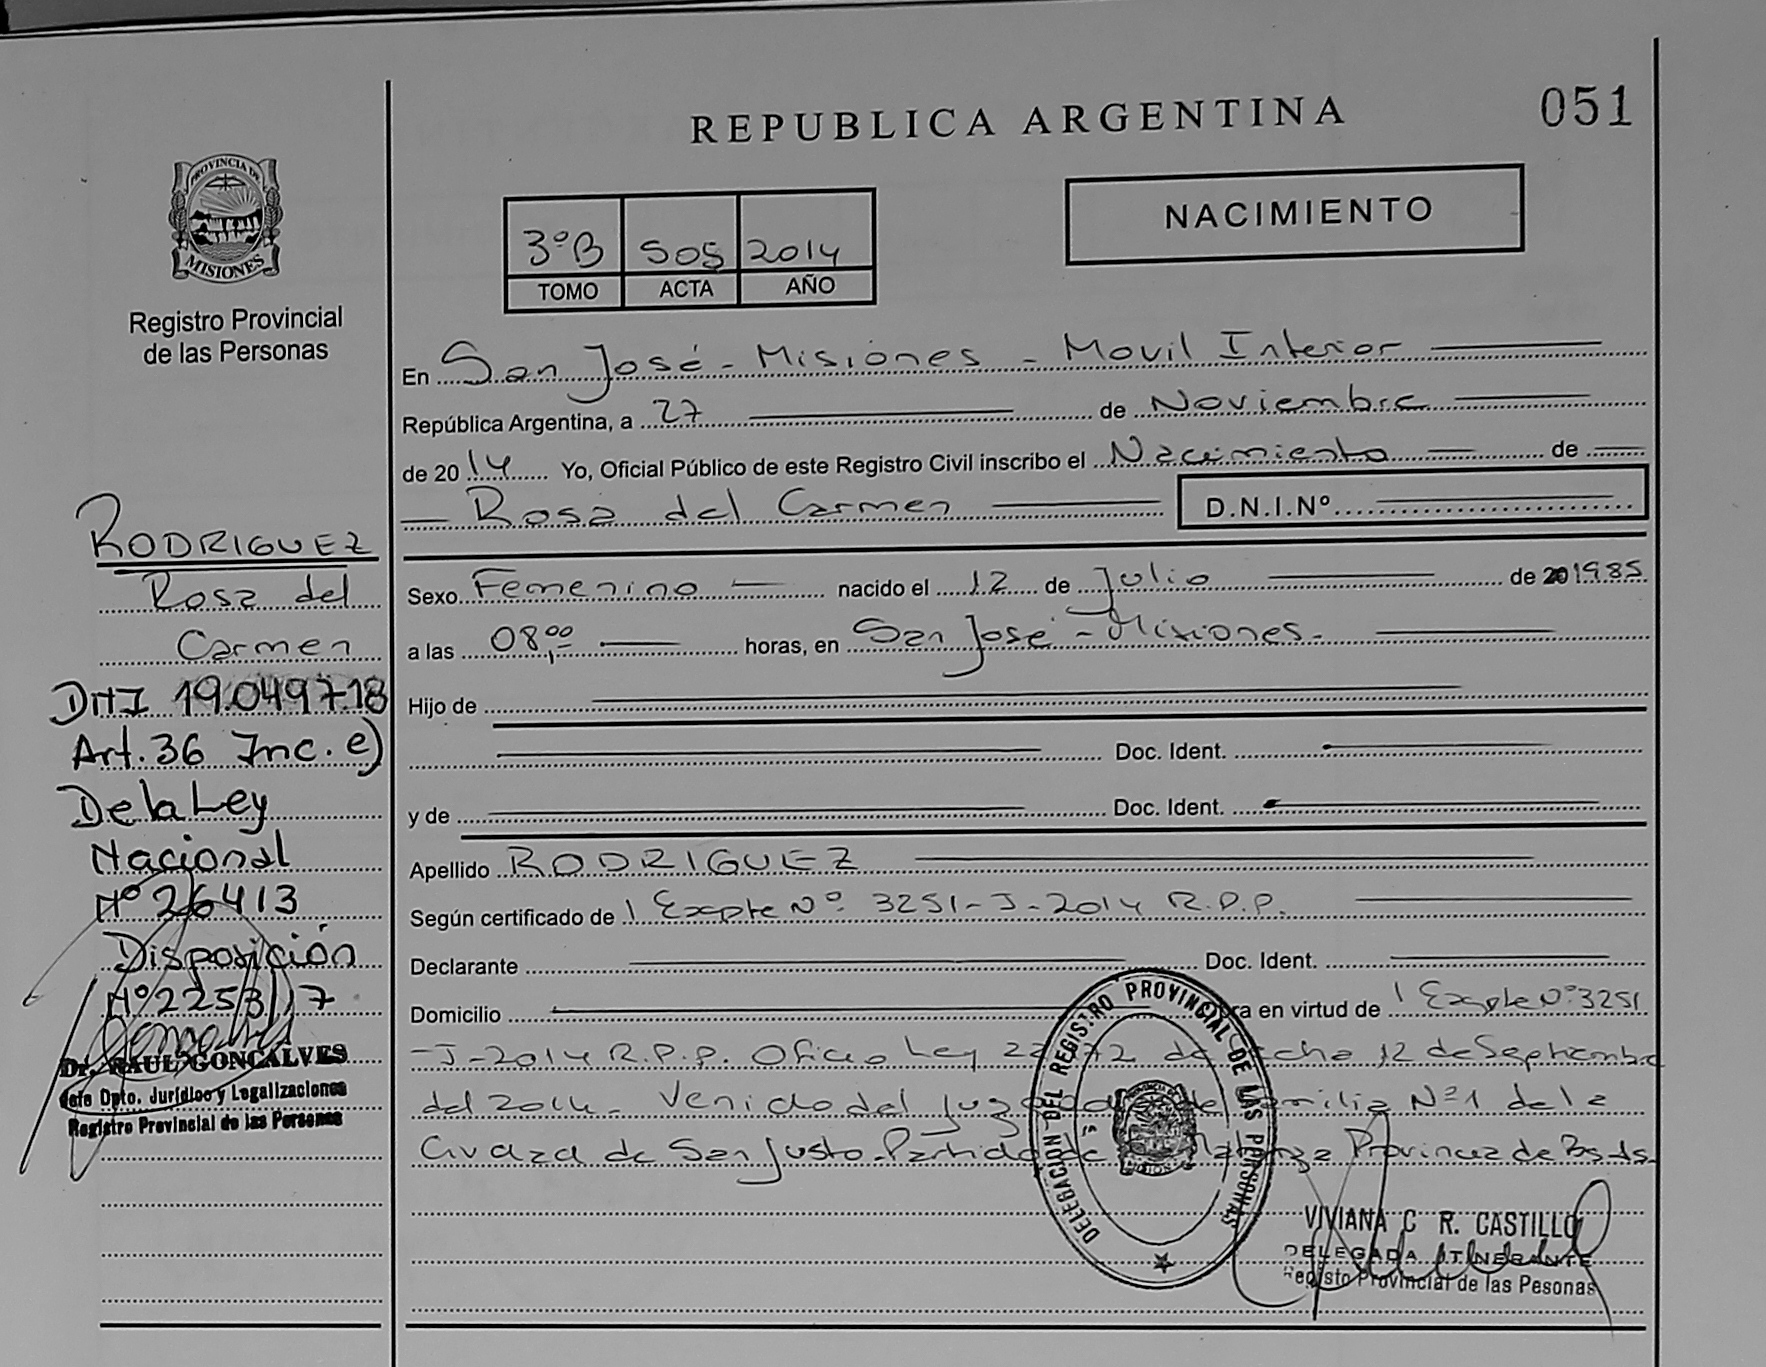 REPUBLICA ARGENTINA
051
PROVINCIA DE
MISIONES
Registro Provincial
de las Personas
3ºB 505 2014
TOMO ACTA AÑO
NACIMIENTO
En San José - Misiones - Movil Interior
República Argentina, a 27 de Noviembre
de 2014 Yo, Oficial Público de este Registro Civil inscribo el Nacimiento de
Rosa del Carmen D.N.I.Nº
Sexo Femenino nacido el 12 de Julio de 201985
a las 08,00 horas, en San José - Misiones.
Hijo de
Doc. Ident.
y de Doc. Ident.
Apellido RODRIGUEZ
Según certificado de Expte Nº 3251-J-2014 R.P.P.
Declarante Doc. Ident.
Domicilio en virtud de Expte Nº 3251
-J-2014 R.P.P. Oficio Ley 12 de Septiembre
del 2014. Venido del Nº1 de la
Ciudad de San Justo. Partido de Matanza Provincia de Bs. As.
DELEGACIÓN DEL REGISTRO PROVINCIAL DE LAS PERSONAS
VIVIANA C R. CASTILLO
DELEGADA ITINERANTE
Registo Provincial de las Pesonas
RODRIGUEZ
Rosa del
Carmen
DNI 19.049718
Art.36 Inc. e)
De la Ley
Nacional
Nº 26413
Disposición
Nº 2253/17
Dr. RAUL GONCALVES
Jefe Dpto. Jurídico y Legalizaciones
Registro Provincial de las Personas